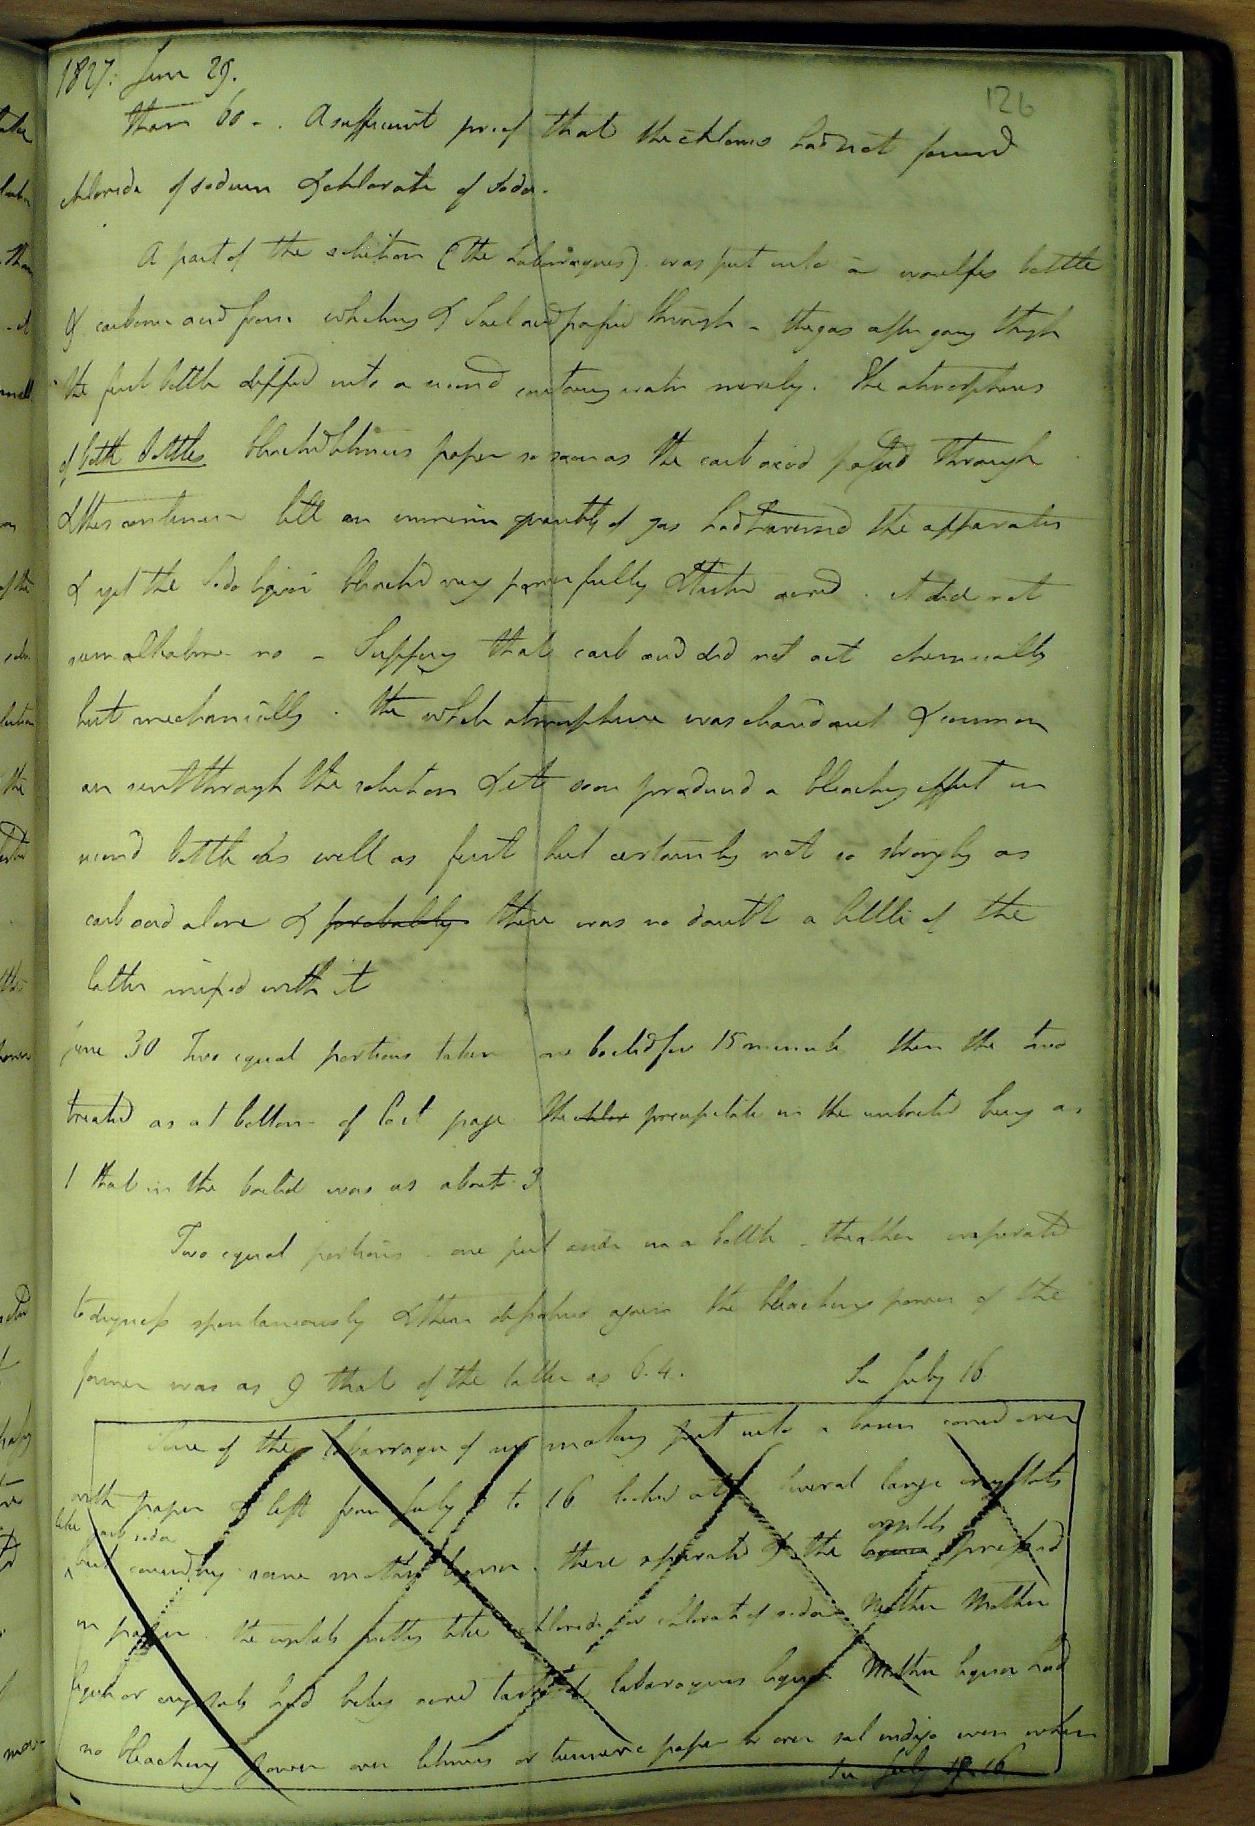 126
1827. June 29.
than 60 - . A sufficient proof that the chlorine had not formed
chloride of sodium & chlorate of soda.
A part of the solution (the Labarraques) was put into a woulfes bottle
& carbonic acid from whiting & Sul acid passed through - the gas after going through
the first bottle dipped into a second containing water merely. The atmospheres
of both bottles bleached litmus paper so soon as the carb acid passed through
& this continued till an immense quantity of gas had traversed the apparatus
& yet the Soda liquor bleached very powerfully & tasted acrid . it did not
seem alkaline no - Supposing that carb acid did not act chemically
but mechanically . the whole atmosphere was cleared out & common
air sent through the solution & it soon produced a bleaching effect in
second bottle as well as first but certainly not so strongly as
carb acid alone & probably there was no doubt a little of the
latter mixed with it
June 30 Two equal portions taken one boiled for 15 minutes then the two
treated as at bottom of last page the chlor precipitate in the unboiled being as
1 that in the boiled was as about 3
Two equal portions - one put aside in a bottle - the other evaporated
to dryness spontaneously & then dissolved again the bleaching power of the
former was as 9 that of the latter as 6.4.
See July 16
Some of the Labarraque of my making put into a basin covered over
with paper & left from July to 16 looked at several large crystals
like carb soda
crystals
but covered by some mother liquor . these separated & the liquor pressed
in paper . the crystals tasted like chloride or chlorate of soda Neither Mother
liquor or crystals had being acrid taste of labaraques liquor Mother liquor had
no bleaching power over litmus or turmeric paper or over sul indigo even when
See July 16